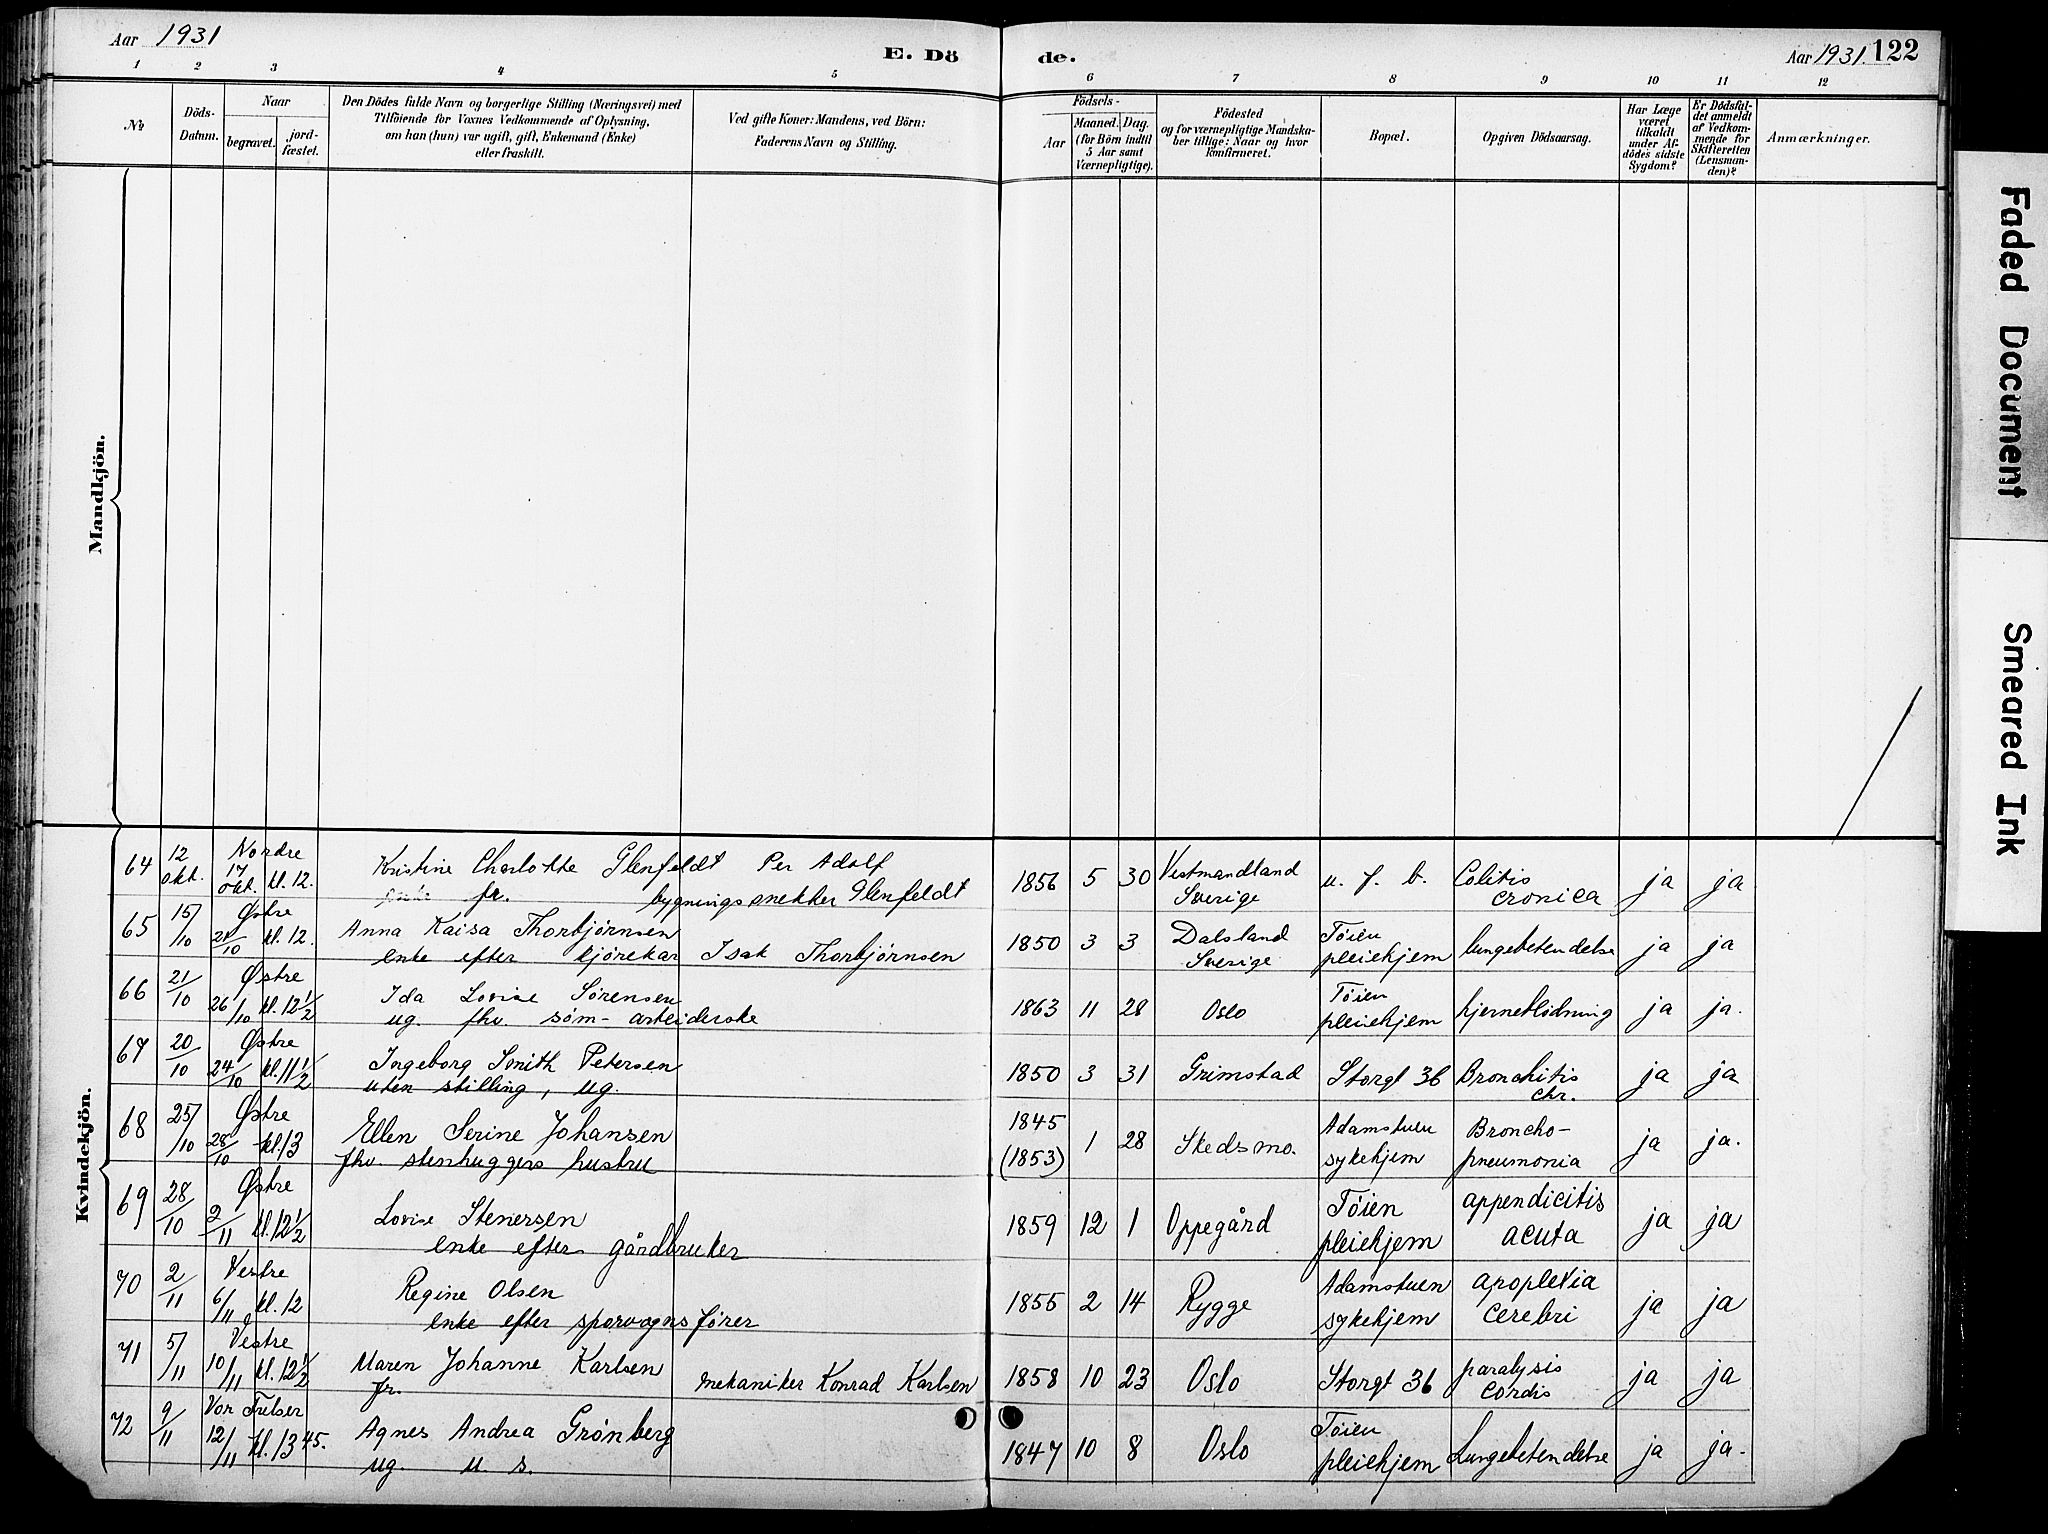 Aar 1931
E. Dö
de.
Aar 1931. 122
1 2 3 4 5 6 7 8 9 10 11 12
No
Döds-Datum.
Naar
begravet.
jord-fæstet.
Den Dödes fulde Navn og borgerlige Stilling (Næringsvei) med
Tilföiende for Voxnes Vedkommende af Oplysning,
om han (hun) var ugift, gift, Enkemand (Enke)
eller fraskilt.
Ved gifte Koner: Mandens, ved Börn:
Faderens Navn og Stilling.
Födsels-
Aar
Maaned. Dag.
(for Börn indtil
5 Aar samt
Værnepligtige).
Födested
og for værnepligtige Mandska-
ber tillige: Naar og hvor
konfirmeret.
Bopæl.
Opgiven Dödsaarsag.
Har Læge
været
tilkaldt
under Af-
dödes sidste
Sygdom?
Er Dödsfal-
det anmeldt
af Vedkom-
mende for
Skifteretten
(Lensman-
den)?
Anmærkninger.
Mandkjön.
Kvindekjön.
64 12 okt. Nordre 17 okt. kl. 12. Kristine Charlotte Glenfeldt Per Adolf 1856 5 30 Vestmandland u. f. b. Colitis ja ja
fr. bygningssnekker Glenfeldt Sverige cronica
65 15/10 Østre 21/10 kl. 12. Anna Kaisa Thorbjørnsen 1850 3 3 Dalsland Tøien lungebetendelse ja ja
enke efter kjørekar Isak Thorbjørnsen Sverige pleiehjem
66 21/10 Østre 26/10 kl. 12 1/2 Ida Lovise Sørensen 1863 11 28 Oslo Tøien hjerneblødning ja ja.
ug. fhv. søm-arbeiderske pleiehjem
67 20/10 Østre 24/10 kl. 11 1/2 Ingeborg Smith Petersen 1850 3 31 Grimstad Storgt 36 Bronchitis ja ja
uten stilling, ug. chr.
68 25/10 Østre 28/10 kl. 13 Ellen Serine Johansen 1845 1 28 Skedsmo. Adamstuen Broncho- ja ja.
fhv. stenhuggers hustru (1853) sykehjem pneumonia
69 28/10 Østre 2/11 kl. 12 1/2 Lovise Stenersen 1859 12 1 Oppegård Tøien appendicitis ja ja
enke efter gårdbruker pleiehjem acuta
70 2/11 Vestre 6/11 kl. 12 Regine Olsen 1855 2 14 Rygge Adamstuen apoplexia ja ja
enke efter sporvognsfører sykehjem cerebri
71 5/11 Vestre 10/11 kl. 12 1/2 Maren Johanne Karlsen 1858 10 23 Oslo Storgt 36 paralysis ja ja
fr. mekaniker Konrad Karlsen cordis
72 9/11 Vor Frelser 12/11 kl. 13 45. Agnes Andrea Grønberg 1847 10 8 Oslo Tøien Lungebetendelse ja ja.
ug. u. s. pleiehjem
Faded Document
Smeared Ink